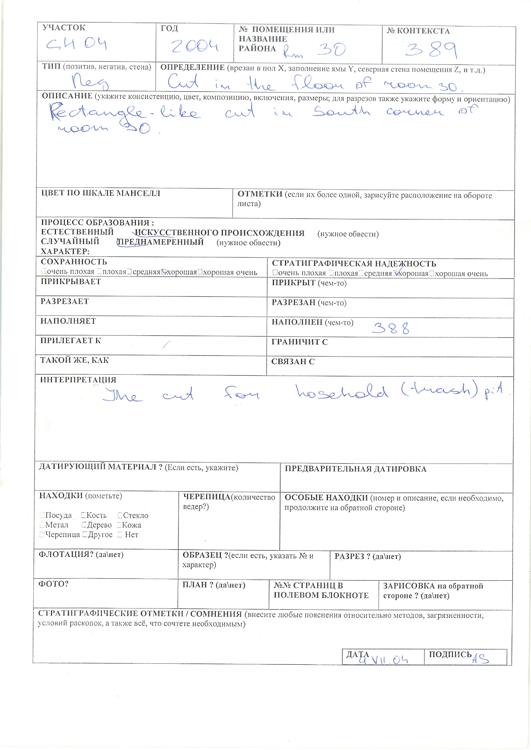 УЧАСТОК ГОД № ПОМЕЩЕНИЯ ИЛИ НАЗВАНИЕ РАЙОНА № КОНТЕКСТА
GH 04 2004 Rm 30 389
ТИП (позитив, негатив, стена) ОПРЕДЕЛЕНИЕ (врезан в пол X, заполнение ямы Y, северная стена помещения Z, и т.д.)
Neg Cut in the floor of room 30.
ОПИСАНИЕ (укажите консистенцию, цвет, композицию, включения, размеры; для разрезов также укажите форму и ориентацию)
Rectangle-like cut in South corner of
room 30.
ЦВЕТ ПО ШКАЛЕ МАНСЕЛЛ ОТМЕТКИ (если их более одной, зарисуйте расположение на обороте
листа)
ПРОЦЕСС ОБРАЗОВАНИЯ :
ЕСТЕСТВЕННЫЙ ИСКУССТВЕННОГО ПРОИСХОЖДЕНИЯ (нужное обвести)
СЛУЧАЙНЫЙ ПРЕДНАМЕРЕННЫЙ (нужное обвести)
ХАРАКТЕР:
СОХРАННОСТЬ СТРАТИГРАФИЧЕСКАЯ НАДЕЖНОСТЬ
очень плохая плохая средняя хорошая хорошая очень очень плохая плохая средняя хорошая хорошая очень
ПРИКРЫВАЕТ ПРИКРЫТ (чем-то)
РАЗРЕЗАЕТ РАЗРЕЗАН (чем-то)
НАПОЛНЯЕТ НАПОЛНЕН (чем-то) 388
ПРИЛЕГАЕТ К ГРАНИЧИТ С
ТАКОЙ ЖЕ, КАК СВЯЗАН С
ИНТЕРПРЕТАЦИЯ
The cut for hosehold (trash) pit.
ДАТИРУЮЩИЙ МАТЕРИАЛ ? (Если есть, укажите) ПРЕДВАРИТЕЛЬНАЯ ДАТИРОВКА
НАХОДКИ (пометьте) ЧЕРЕПИЦА(количество ОСОБЫЕ НАХОДКИ (номер и описание, если необходимо,
ведер?) продолжите на обратной стороне)
Посуда Кость Стекло
Метал Дерево Кожа
Черепица Другое Нет
ФЛОТАЦИЯ? (да\нет) ОБРАЗЕЦ ?(если есть, указать № и РАЗРЕЗ ? (да\нет)
характер)
ФОТО? ПЛАН ? (да\нет) №№ СТРАНИЦ В ЗАРИСОВКА на обратной
ПОЛЕВОМ БЛОКНОТЕ стороне ? (да\нет)
СТРАТИГРАФИЧЕСКИЕ ОТМЕТКИ / СОМНЕНИЯ (внесите любые пояснения относительно методов, загрязненности,
условий раскопок, а также всё, что сочтете необходимым)
ДАТА VII 04 ПОДПИСЬ AS